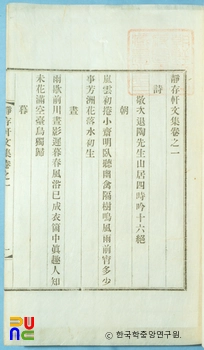 靜春軒文集卷之一
詩
敬次退陶先生山居四時吟十六絕
朝
嵐雲初捲小齋明臥聽幽禽隔樹鳴風雨前宵多少
事芳洲花落水初生
晝
雨歇前川晝影遲暮春風浴已成衣箇中眞趣人知
未花滿空臺鳥獨歸
暮
靜春軒文集卷之一
한국학중앙연구원